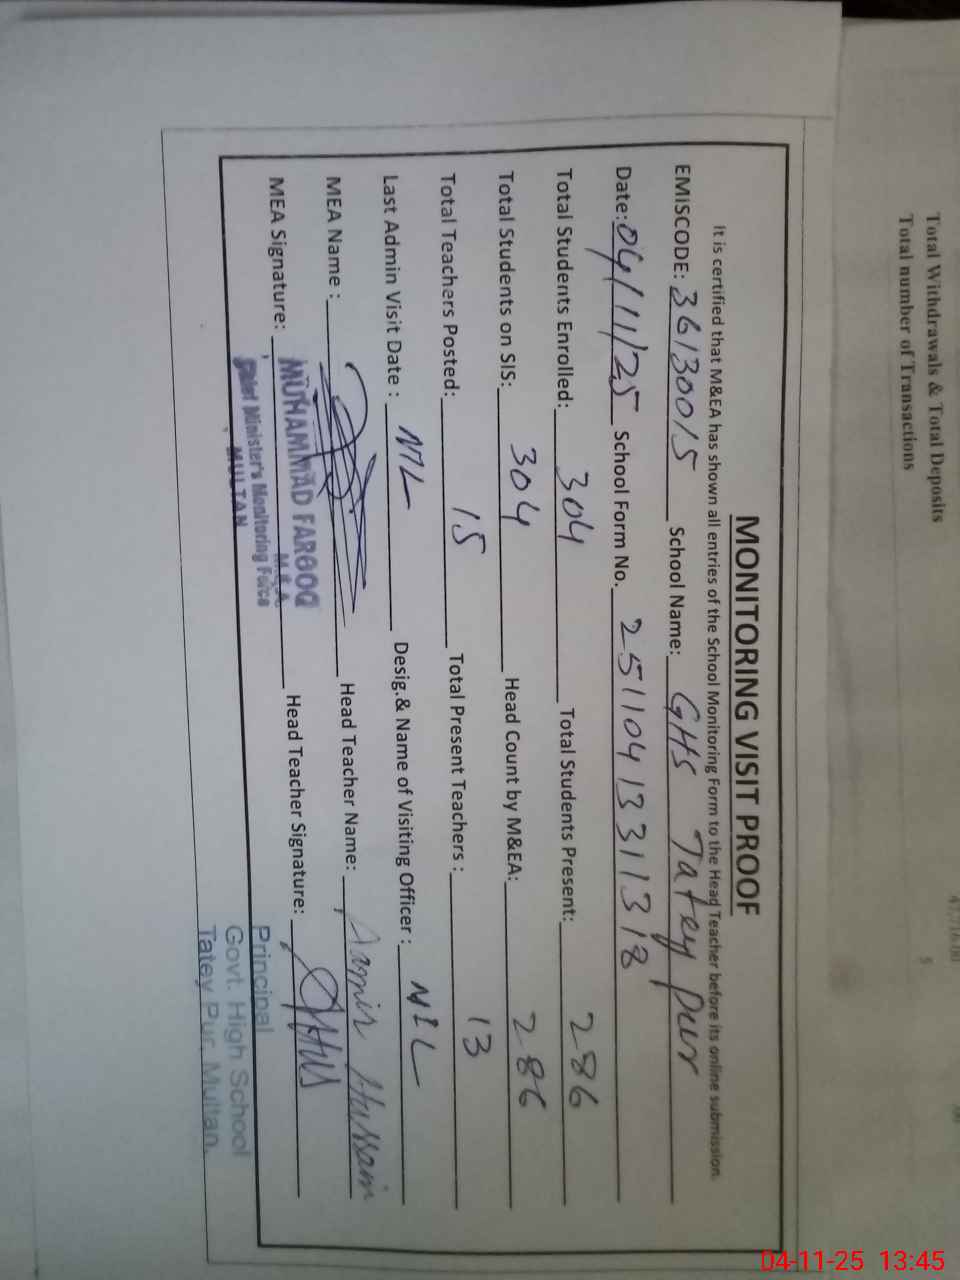 Total Withdrawals & Total Deposits
Total number of Transactions
5
MONITORING VISIT PROOF
It is certified that M&EA has shown all entries of the School Monitoring Form to the Head Teacher before its online submission.
EMISCODE: 36130015 School Name: GHS Tatey pur
Date: 04/11/25 School Form No. 2511041331318
Total Students Enrolled: 304 Total Students Present: 286
Total Students on SIS: 304 Head Count by M&EA: 286
Total Teachers Posted: 15 Total Present Teachers : 13
Last Admin Visit Date : NIL Desig.& Name of Visiting Officer : NIL
MEA Name : Head Teacher Name: Aamir Hussain
MEA Signature: Head Teacher Signature:
MUHAMMAD FAROOQ
M.E.A
Chief Minister's Monitoring Force
MULTAN
Principal
Govt. High School
Tatey Pur, Multan.
04-11-25 13:45